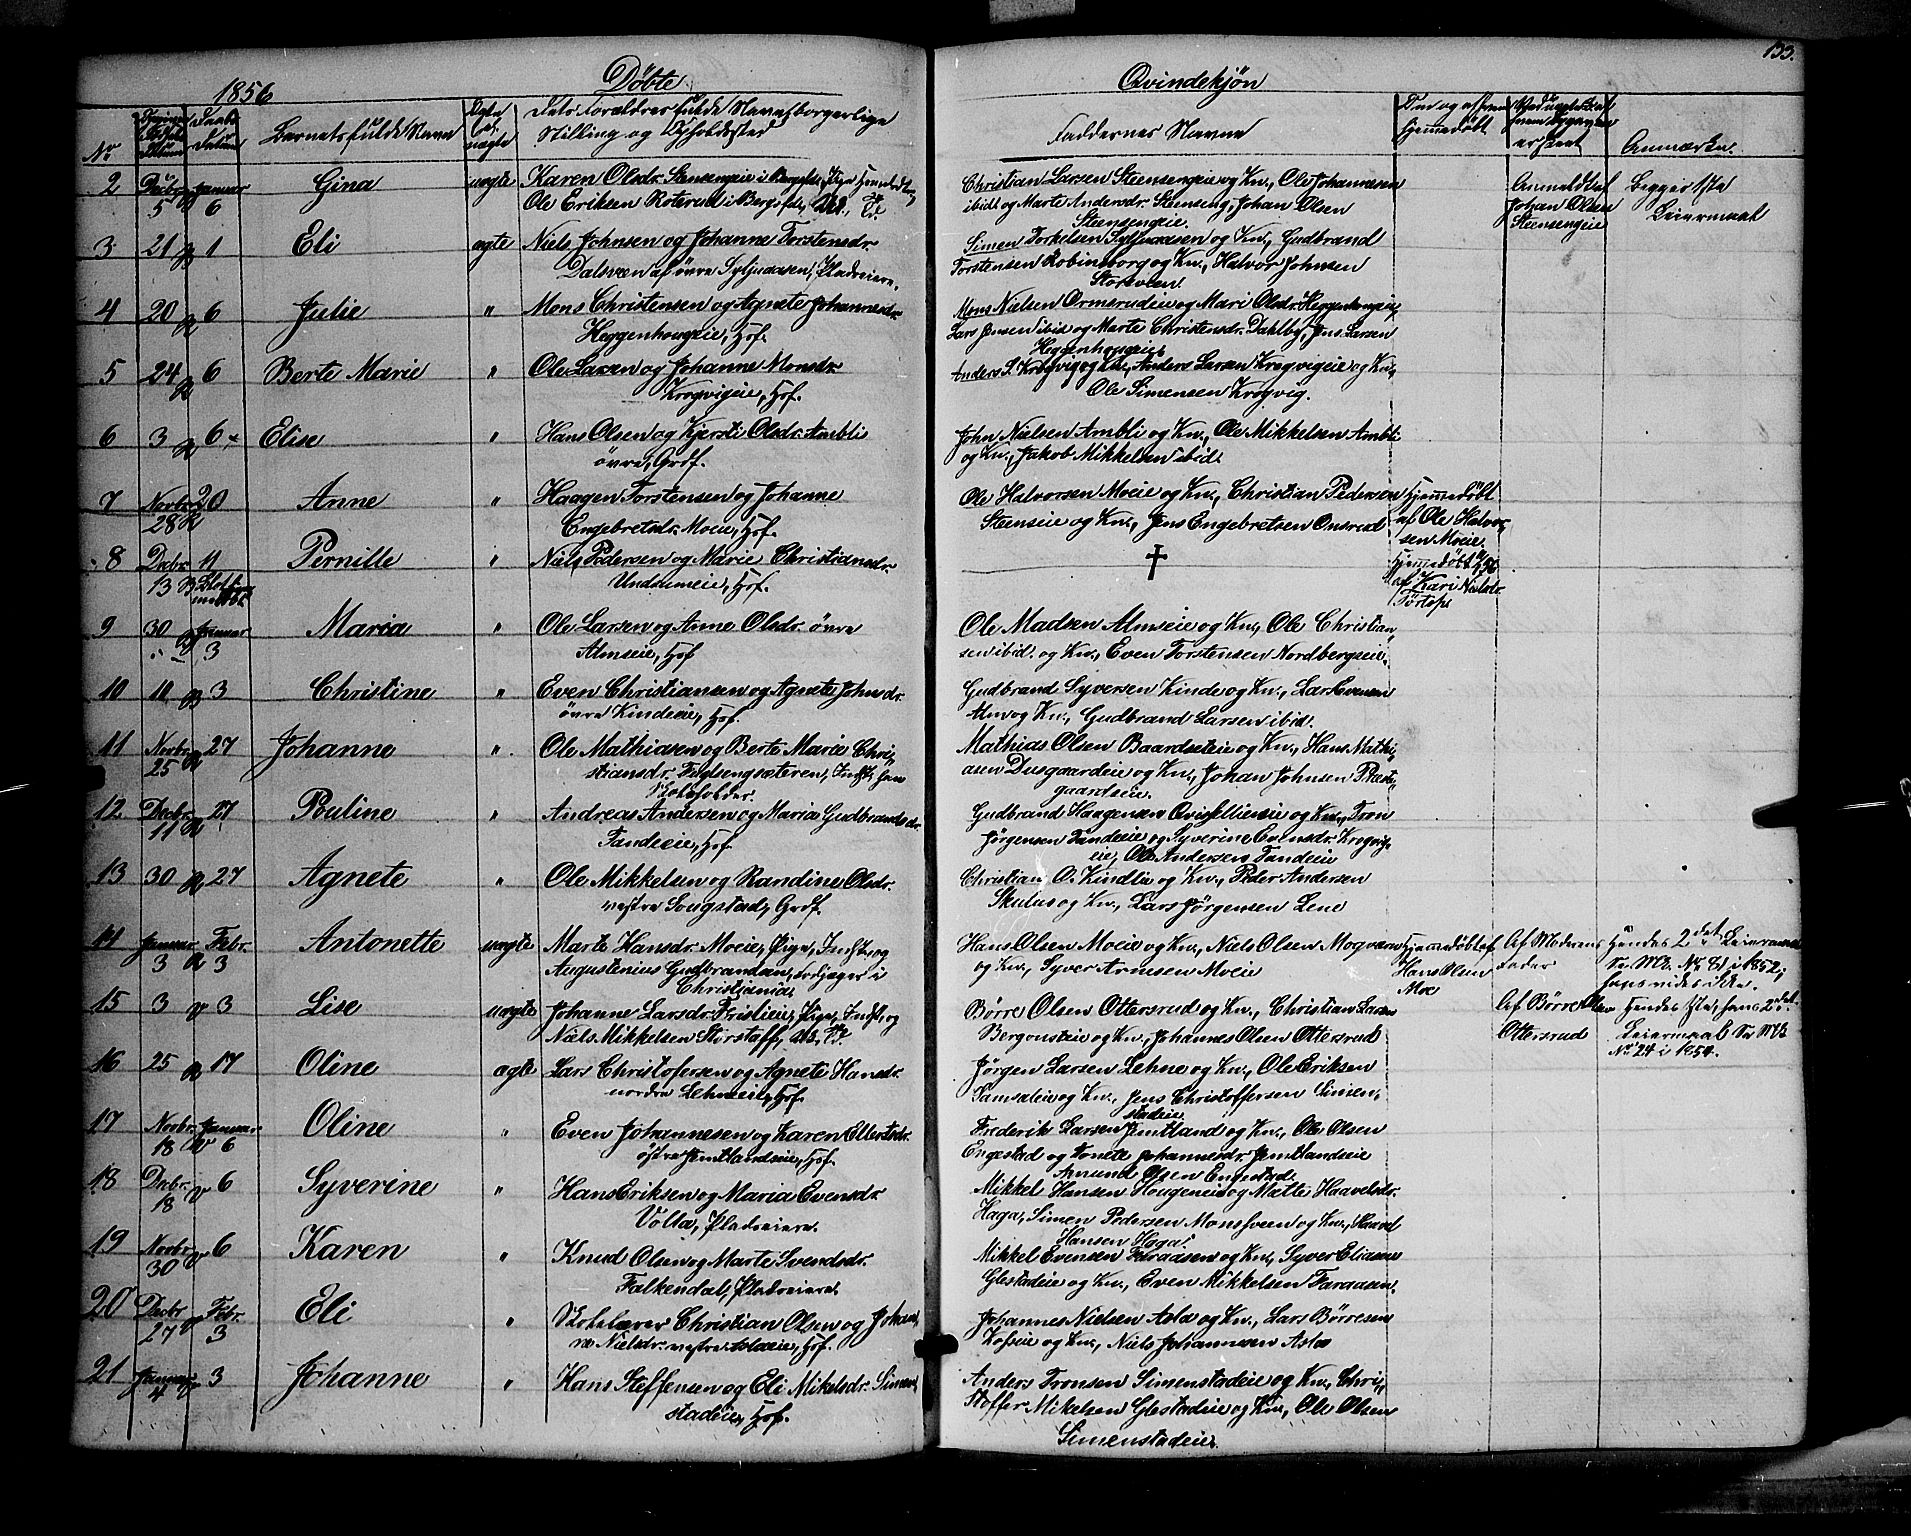 133.
1856
Døbte
Qvindekjøn
No
Barnets fulde Navn
Dets Forældres fulde Navn, borgerlige
Stilling og Opholdssted
Faddernes Navne
hjemmedøbt
Anmærkn.
2 Decbr. Januar Gina uægte Karen Olsdr.
5 6 Ole Eriksen Roterud i
Christian Larsen Steensengeie og Kn., Ole Johannesen
ibidt og Marte Andersdr. Steenseng, Johan Olsen
Steensengeie.
Anmeldt af
Johan Olsen
Steensengeie
Begges 1ste
Leiermaal
3 21 1 Eli ægte Niels Johnsen og Johanne Torstensdr.
Dalsveen af övre Syljuaasen, Pladseiere.
Simen Torkelsen Syljuaasen og Kn., Gudbrand
Torstensen Robinsborg og Kn., Halvor Johnsen
Storsveen
4 20 6 Julie " Mons Christensen og Agnete Johannesdr.
Heggenhougeie, Hof.
Mons Nielsen Ormerudeie og Mari Olsdr. Heggenhougeie,
Lars Jensen ibid og Marte Christensdr. Dahlby, Jens Larsen
Heggenhougeie
5 24 6 Berte Marie " Ole Larsen og Johanne Monsdr.
Krogvigeie, Hof.
Anders S. Krogvig og Kn., Anders Larsen Krogvigeie og Kn.,
Ole Simensen Krogvig.
6 3 6 Elise " Hans Olsen og Kjersti Olsdr. Ambli
övre, Grdf.
John Nielsen Ambli og Kn., Ole Mikkelsen Ambli
og Kn., Jakob Mikkelsen ibid.
7 Novbr. 20 Anne " Haagen Torstensen og Johanne
28 Engebretsdr. Moeie, Hof.
Ole Halvorsen Moeie og Kn., Christian Pedersen
Steenseie og Kn., Jens Engebretsen Onsrud
Hjemmedøbt
af Ole Halvor,
sen Moeie.
8 Decbr. 11 Pernille " Niels Pedersen og Marie Christiansdr.
13 Undsumeie, Hof.
†
Hjemmedøbt
af Kari Nielsdr.
9 30 Januar Maria " Ole Larsen og Anne Olsdr. övre
3 Almseie, Hof
Ole Madsen Almseie og Kn., Ole Christian,
sen ibid. og Kn., Even Torstensen Nordbergseie.
10 11 3 Christine " Even Christiansen og Agnete Johnsdr.
övre Kindeeie, Hof.
Gudbrand Syversen Kinde og Kn., Lars Evensen
Alm og Kn., Gudbrand Larsen ibid.
11 Novbr. 27 Johanne " Ole Mathiasen og Berte Marie Chri,
25 stiansdr. Fuglsengsæteren, Indst. som
Skoleholder.
Mathias Olsen Baardseteie og Kn., Hans Mathi,
asen Dusgaardeie og Kn., Johan Johnsen Præste,
gaardseie.
12 Decbr. 27 Pauline " Andreas Andersen og Maria Gudbrandsdr.
11 Tandeeie, Hof
Gudbrand Haagensen Qvisellieneie og Kn., Tron
Jørgensen Tandeeie og Syverine Evensdr. Krogvig,
eie, Ole Andersen Tandeeie
13 30 27 Agnete " Ole Mikkelsen og Randine Olsdr.
vestre Sougstad, Grdf.
Christian O. Kindlie og Kn., Peder Andersen
Skulus og Kn., Lars Jørgensen Lene
14 Januar Febr. Antonette uægte Marte Hansdr. Moeie, Pige, Indst. og
3 3 Augustenius Gudbrandsen, Jordjager i
Christiania
Hans Olsen Moeie og Kn., Niels Olsen Mogveen
og Kn., Syver Arnesen Moeie
Hjemmedøbt af
Hans Olsen
Moe
Af Moderens
Fader
Hendes 2det Leierm.
Se MB. No 81 i 1852;
hans vides ikke.
15 3 3 Lise uægte Johanne Larsdr. Fristieie, Pige, Indst. og
Niels Mikkelsen Storstaff,
Børre Olsen Ottersrud og Kn., Christian Larsen
Bergonsteie og Kn., Johannes Olsen Ottersrud
Af Børre Olsen
Ottersrud
Hendes 1ste, hans 2det.
Leiermaal Se MB
No 24 i 1854.
16 25 17 Oline ægte Lars Christofersen og Agnete Hansdr.
nordre Lehneeie, Hof.
Jørgen Larsen Lehne og Kn., Ole Eriksen
Samsaleie og Kn., Jens Christoffersen Simen,
stadeie
17 Novbr. Januar Oline " Even Johannesen og Karen Ellertsdr.
18 6 östre Jemtlandseie, Hof.
Frederik Larsen Jemtland og Kn., Ole Olsen
Engestad og Tonete Johannesdr. Jemtlandeie
Amund Olsen Engestad
18 Decbr. 6 Syverine " Hans Eriksen og Maria Evensdr.
18 Volla, Pladseiere
Mikkel Hansen Hougeneie og Mætte Haavelsdr.
Haga, Simen Pedersen Monsveen og Kn., Haavel
Hansen Haga
19 Novbr. 6 Karen " Knud Olsen og Marte Svendsdr.
30 Falkendal, Pladseiere
Mikkel Evensen Faraasen og Kn., Syver Eliasen
Glestadeie og Kn., Even Mikkelsen Faraasen.
20 Decbr. Febr. Eli " Skolelærer Christian Olsen og Johan,
27 3 ne Nielsdr. vestre Aslaeie, Hof.
Johannes Nielsen Asla og Kn., Lars Børresen
Hofseie og Kn., Niels Johannesen Asla
21 Januar 3 Johanne " Hans Steffensen og Eli Mikelsdr. Simen,
4 stadeie, Hof.
Anders Tronsen Simenstadeie og Kn., Chri,
stoffer Mikelsen Glestadeie og Kn., Ole Olsen
Simenstadeie.